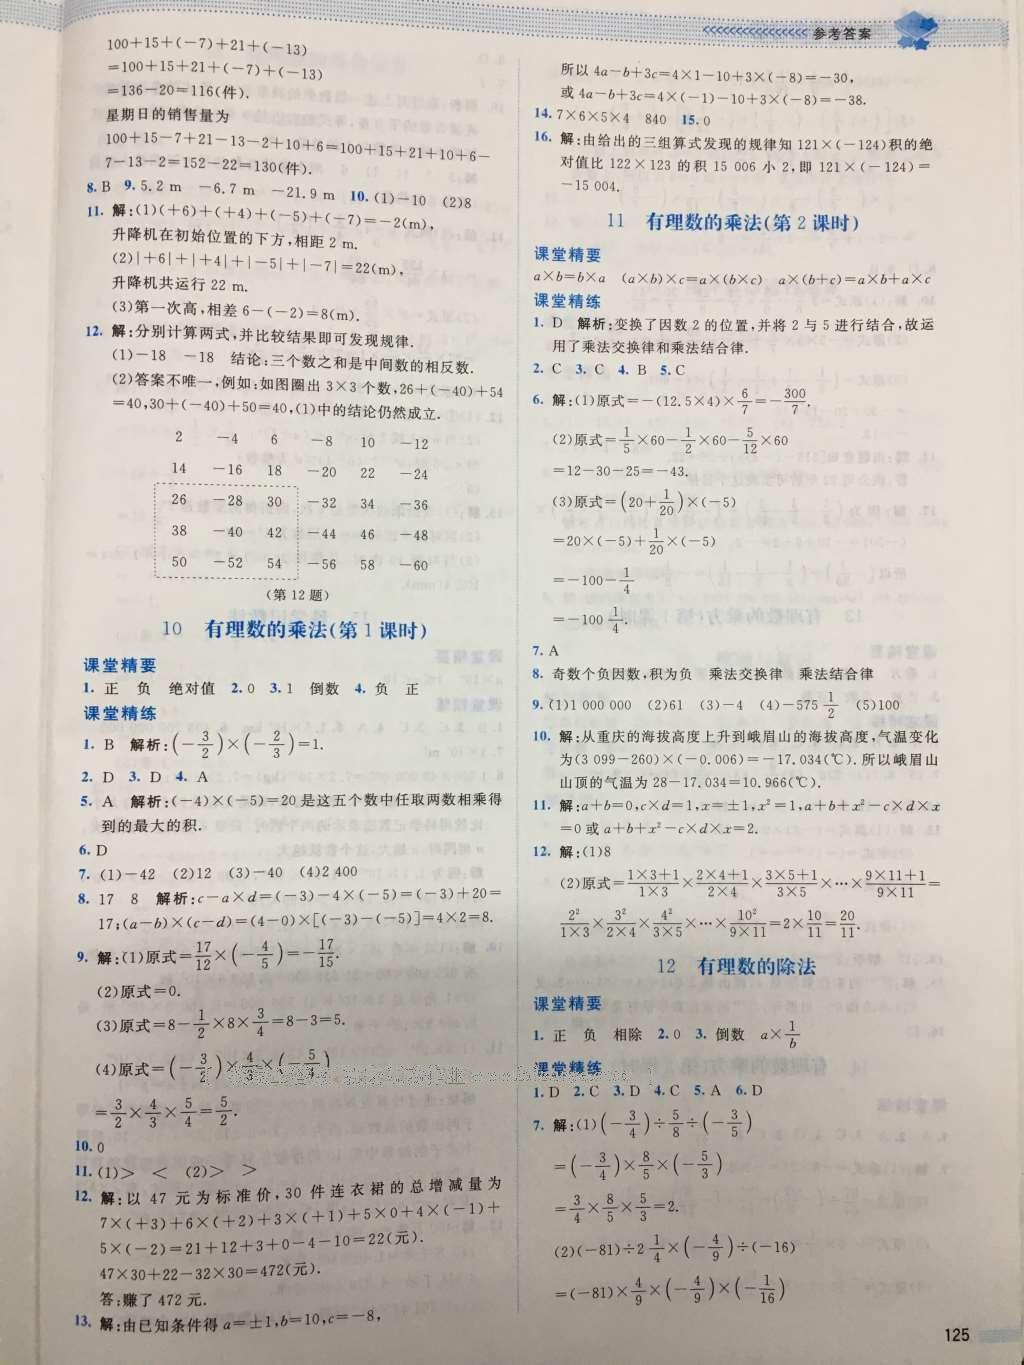 参考答案
100+15+(-7)+21+(-13)
=100+15+21+(-7)+(-13)
=136-20=116(件).
星期日的销售量为
100+15-7+21-13-2+10+6=100+15+21+10+6-
7-13-2=152-22=130(件).
8. B  9. 5.2 m  -6.7 m  -21.9 m  10. (1)-10  (2)8
11. 解:(1)(+6)+(+4)+(-5)+(-7)=-2(m),
升降机在初始位置的下方,相距 2 m.
(2)|+6|+|+4|+|-5|+|-7|=22(m),
升降机共运行 22 m.
(3)第一次高,相差 6-(-2)=8(m).
12. 解:分别计算两式,并比较结果即可发现规律.
(1)-18  -18  结论:三个数之和是中间数的相反数.
(2)答案不唯一,例如:如图圈出 3×3 个数,26+(-40)+54
=40,30+(-40)+50=40,(1)中的结论仍然成立.
2  -4  6  -8  10  -12
14  -16  18  -20  22  -24
26  -28  30  -32  34  -36
38  -40  42  -44  46  -48
50  -52  54  -56  58  -60
(第 12 题)
10  有理数的乘法(第 1 课时)
课堂精要
1. 正  负  绝对值  2. 0  3. 1  倒数  4. 负  正
课堂精练
1. B  解析:(-3/2)×(-2/3)=1.
2. D  3. D  4. A
5. A  解析:(-4)×(-5)=20 是这五个数中任取两数相乘得
到的最大的积.
6. D
7. (1)-42  (2)12  (3)-40  (4)2 400
8. 17  8  解析:c-a×d=(-3)-4×(-5)=(-3)+20=
17;(a-b)×(c-d)=(4-0)×[(-3)-(-5)]=4×2=8.
9. 解:(1)原式=17/12×(-4/5)=-17/15.
(2)原式=0.
(3)原式=8-1/2×8×3/4=8-3=5.
(4)原式=(-3/2)×4/3×(-5/4)
=3/2×4/3×5/4=5/2.
10. 0
11. (1)>  <  (2)>  >
12. 解:以 47 元为标准价,30 件连衣裙的总增减量为
7×(+3)+6×(+2)+3×(+1)+5×0+4×(-1)+
5×(-2)=21+12+3+0-4-10=22(元).
47×30+22-32×30=472(元).
答:赚了 472 元.
13. 解:由已知条件得 a=±1,b=10,c=-8,
所以 4a-b+3c=4×1-10+3×(-8)=-30,
或 4a-b+3c=4×(-1)-10+3×(-8)=-38.
14. 7×6×5×4  840  15. 0
16. 解:由给出的三组算式发现的规律知 121×(-124)积的绝
对值比 122×123 的积 15 006 小 2,即 121×(-124)=
-15 004.
11  有理数的乘法(第 2 课时)
课堂精要
a×b=b×a  (a×b)×c=a×(b×c)  a×(b+c)=a×b+a×c
课堂精练
1. D  解析:变换了因数 2 的位置,并将 2 与 5 进行结合,故运
用了乘法交换律和乘法结合律.
2. C  3. C  4. B  5. C
6. 解:(1)原式=-(12.5×4)×6/7=-300/7.
(2)原式=1/5×60-1/2×60-5/12×60
=12-30-25=-43.
(3)原式=(20+1/20)×(-5)
=20×(-5)+1/20×(-5)
=-100-1/4
=-100 1/4.
7. A
8. 奇数个负因数,积为负  乘法交换律  乘法结合律
9. (1)1 000 000  (2)61  (3)-4  (4)-575 1/2  (5)100
10. 解:从重庆的海拔高度上升到峨眉山的海拔高度,气温变化
为(3 099-260)×(-0.006)=-17.034(℃).所以峨眉山
山顶的气温为 28-17.034=10.966(℃).
11. 解:a+b=0,c×d=1,x=±1,x²=1,a+b+x²-c×d×x
=0 或 a+b+x²-c×d×x=2.
12. 解:(1)8
(2)原式=1×3+1/1×3×2×4+1/2×4×3×5+1/3×5×…×9×11+1/9×11=
2²/1×3×3²/2×4×4²/3×5×…×10²/9×11=2×10/11=20/11.
12  有理数的除法
课堂精要
1. 正  负  相除  2. 0  3. 倒数  a×1/b
课堂精练
1. D  2. C  3. D  4. C  5. A  6. D
7. 解:(1)(-3/4)÷5/8÷(-3/5)
=(-3/4)×8/5×(-5/3)
=3/4×8/5×5/3=2.
(2)(-81)÷2 1/4×(-4/9)÷(-16)
=(-81)×4/9×(-4/9)×(-1/16)
125